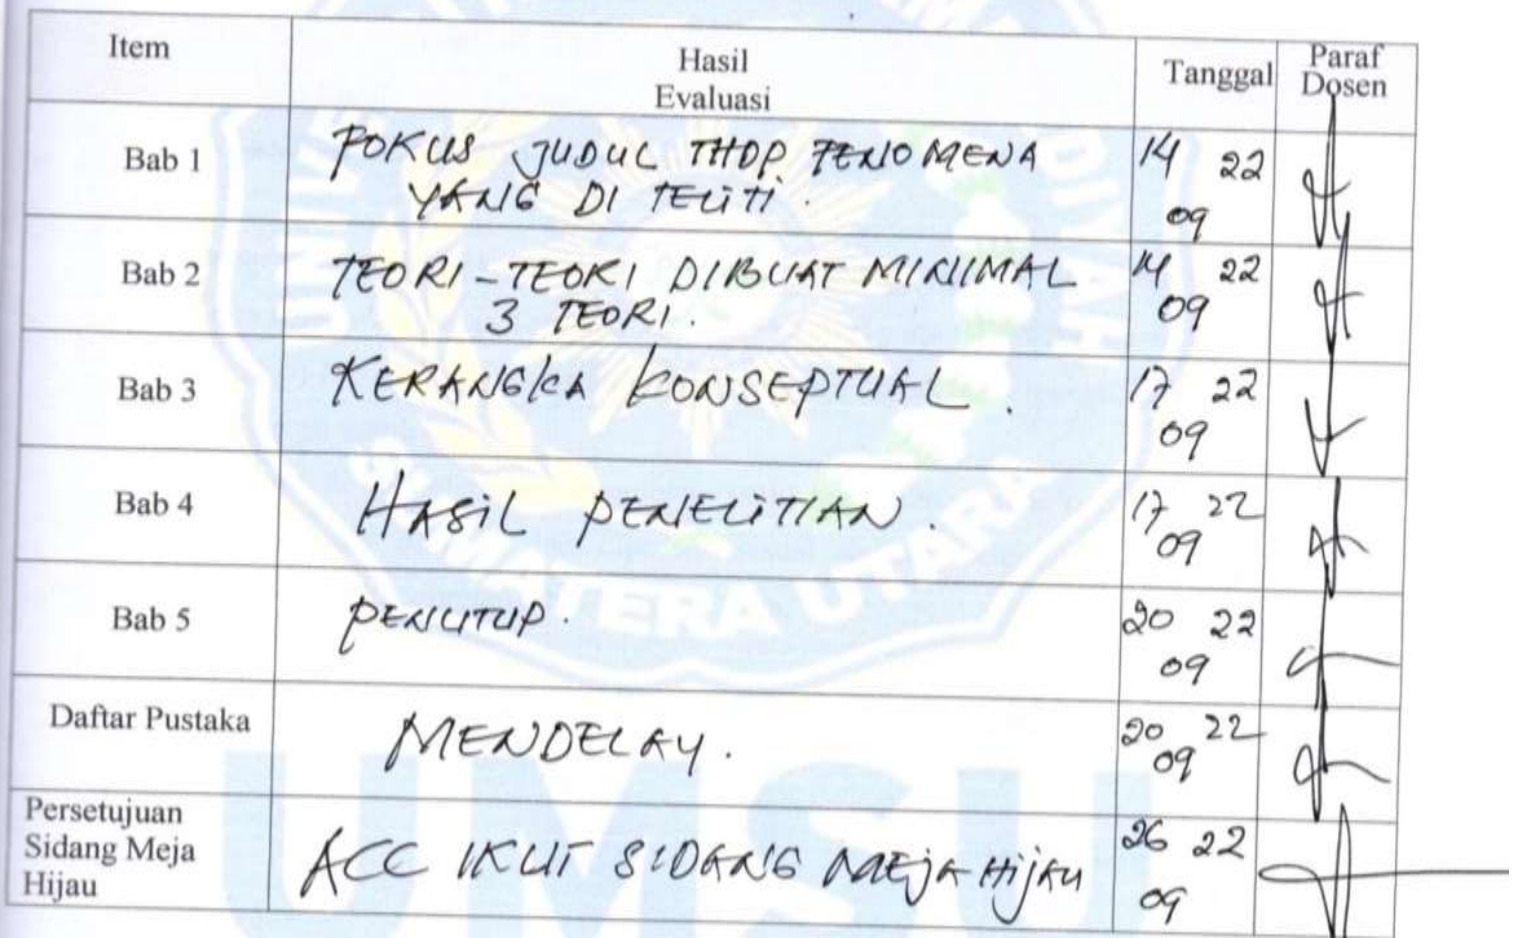 Item Hasil Evaluasi Tanggal Paraf Dosen
Bab 1 FOKUS JUDUL THDP FENOMENA 14 22
YANG DI TELITI. 09
Bab 2 TEORI-TEORI DIBUAT MINIMAL 14 22
3 TEORI. 09
Bab 3 KERANGKA KONSEPTUAL. 17 22
09
Bab 4 HASIL PENELITIAN. 17 22
09
Bab 5 PENUTUP. 20 22
09
Daftar Pustaka MENDELAY. 20 22
09
Persetujuan
Sidang Meja ACC IKUT SIDANG MEJA HIJAU 26 22
Hijau 09
SUMATERA UTARA
UMSU